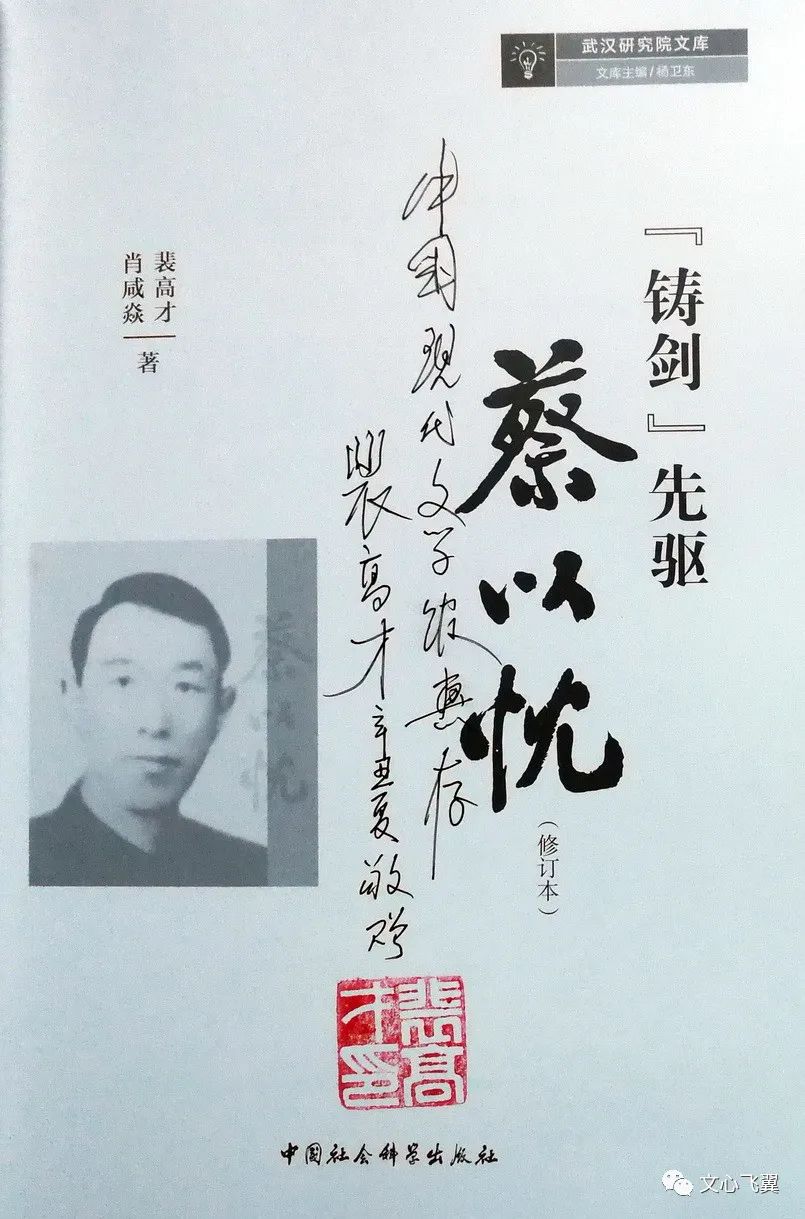 武汉研究院文库
文库主编/杨卫东
『铸剑』先驱
蔡以忱
（修订本）
中国现代文学馆惠存
裴高才辛丑夏敬赠
裴高才
肖咸焱
著
蔡以忱
裴高才印
中国社会科学出版社
文心飞翼